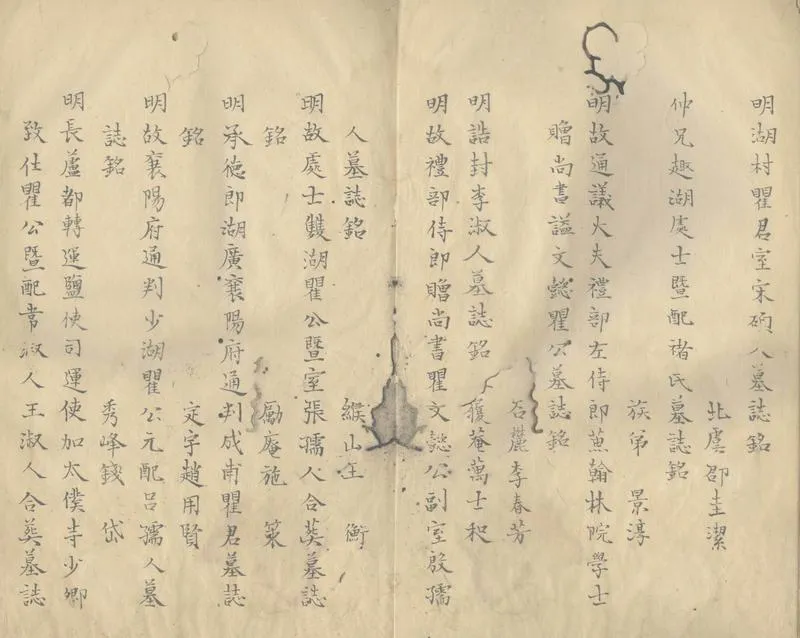 明湖村瞿君室宋碩人墓誌銘
北虞邵圭潔
仲兄趣湖處士暨配褚氏墓誌銘
族弟 景淳
明故通議大夫禮部左侍郎蒹翰林院學士
贈尚書謚文懿瞿公墓誌銘
石麓李春芳
明誥封李淑人墓誌銘
履菴萬士和
明故禮部侍郎贈尚書瞿文懿公副室殷孺
人墓誌銘
緱山王 衡
明故處士雙湖瞿公暨室張孺人合葬墓誌
銘
勵庵施 策
明承德郎湖廣襄陽府通判成甫瞿君墓誌
銘
定宇趙用賢
明故襄陽府通判少湖瞿公元配呂孺人墓
誌銘
秀峰錢 岱
明長蘆都轉運鹽使司運使加太僕寺少卿
致仕瞿公暨配常淑人王淑人合葬墓誌